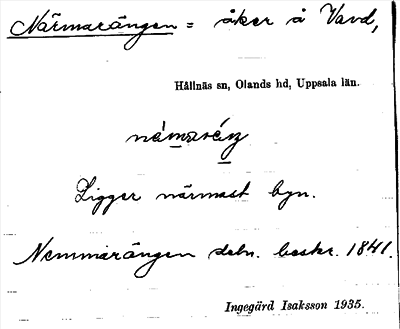 Närmarängen = åker å Vavd,
Hållnäs sn, Olands hd, Uppsala län.
Ligger närmast byn.
Nemmärängen debr. beskr. 1841.
Ingegärd Isaksson 1935.